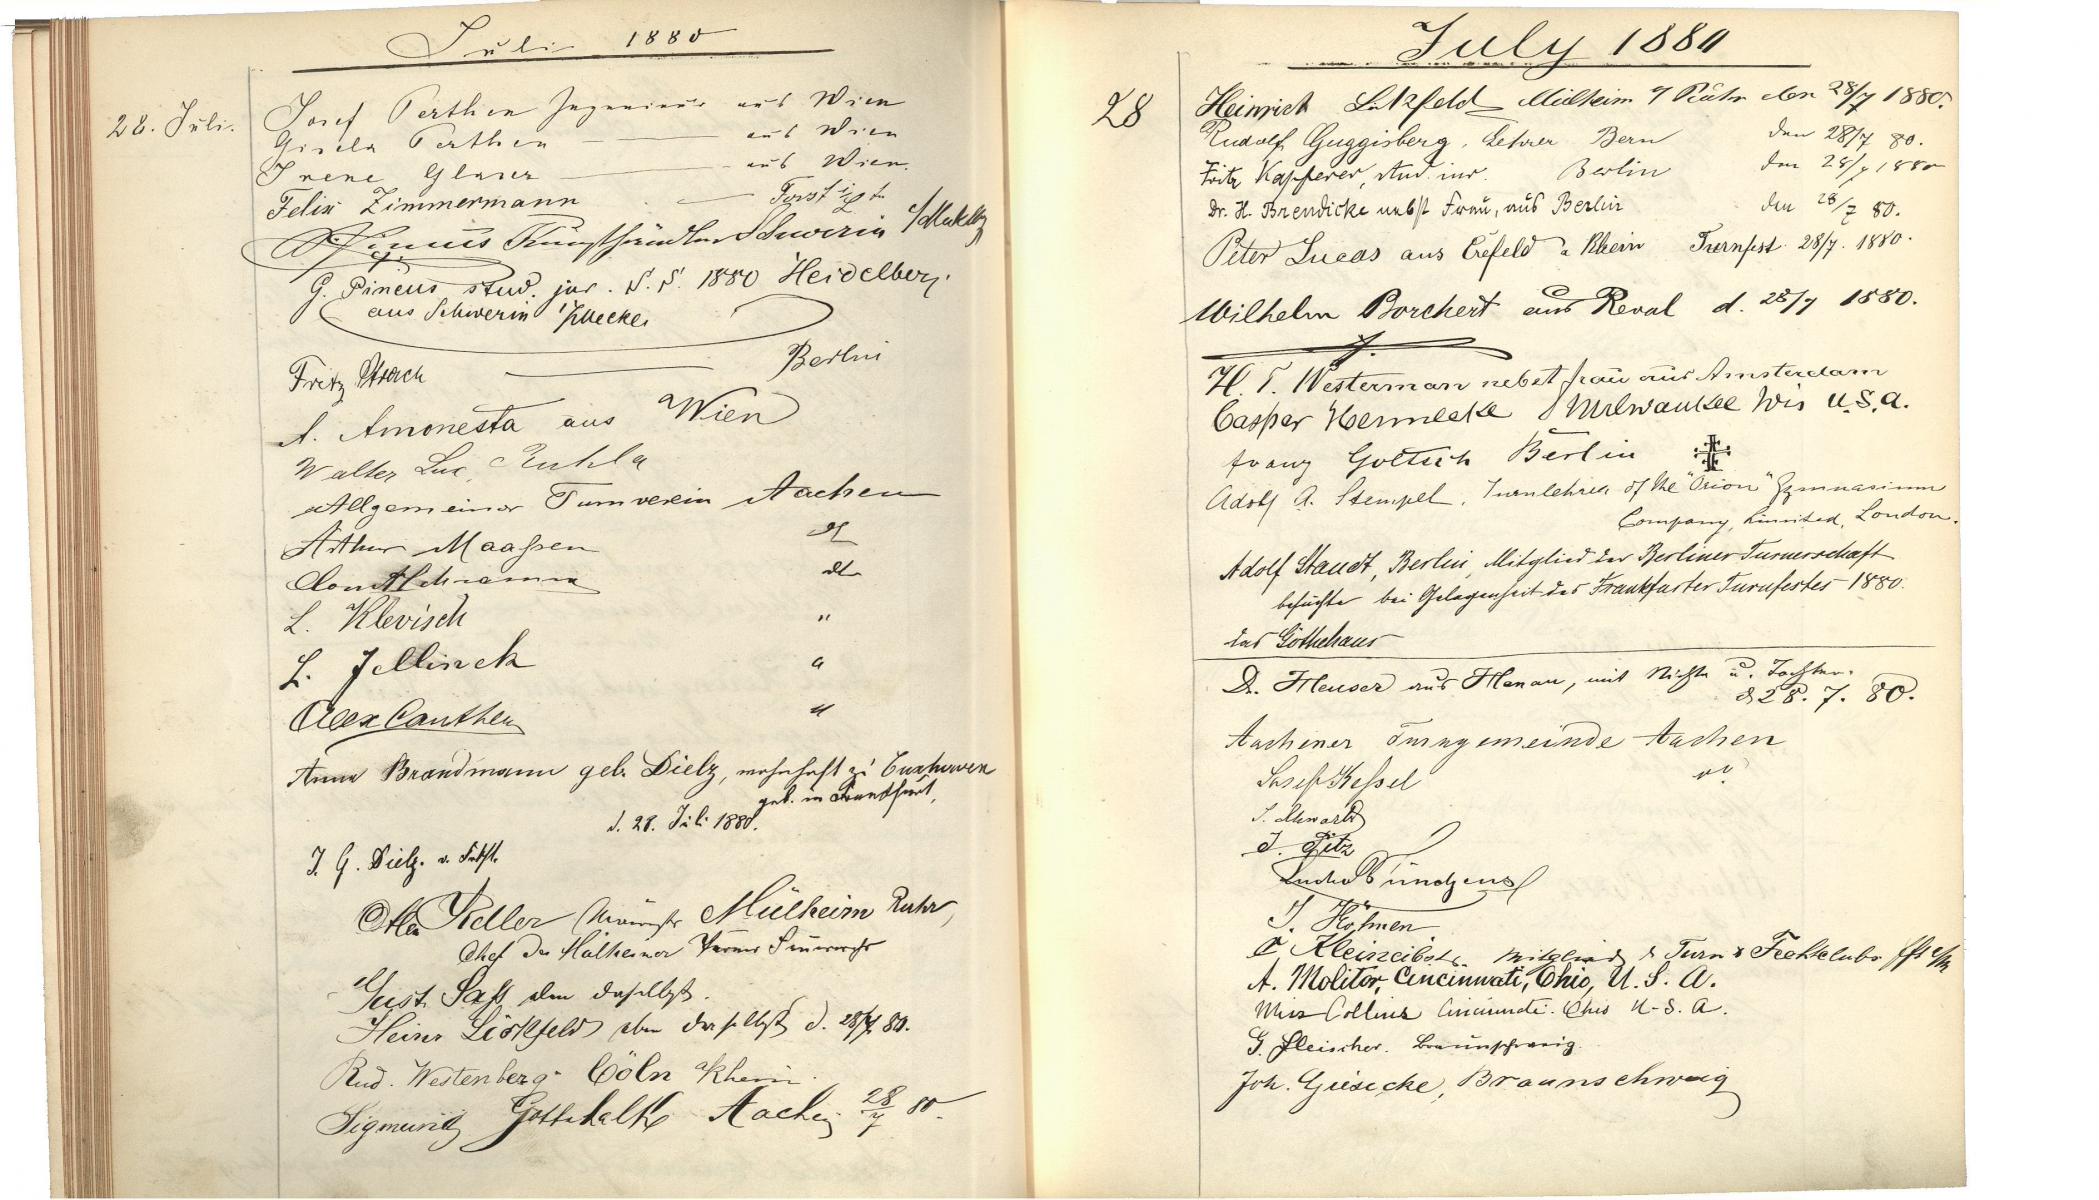 Juli 1880
28. Juli.
Josef Perthen Ingenieur aus Wien
Gisela Perthen aus Wien
Irene Glaser aus Wien.
Felix Zimmermann Forst i/L
Pincus Kunsthändler Schwerin i/Meckbg
G. Pincus stud. jur. S. S. 1880 Heidelberg.
aus Schwerin i/Meckl.
Fritz Berlin
A. Amonesta aus Wien
Walter Lux, Ruhla
Allgemeiner Turnverein Aachen
Arthur Maassen dt
Schramm dto
L. Klevisch "
L. Jellinek "
Alex Canthen "
Anna Brandmann geb. Dielz, wohnhaft zu Cuxhaven
geb. in Frankfurt,
d. 28. Juli 1880.
J. G. Dielz.
Otto Keller Mülheim Ruhr,
Chef der Mülheimer Turner Feuerwehr
Gust. Sass eben daselbst.
Heinr. eben daselbst d. 28/7. 80.
Rud. Westenberg Cöln a/Rhein.
Sigmund Gottschalk Aachen 28/7 80.
July 1880
28
Heinrich Mülheim a/ Ruhr den 28/7 1880.
Rudolf Guggisberg, Lehrer Bern den 28/7 80.
Fritz Kapferer, stud. iur. Berlin den 28/7 1880
Dr. H. Brendicke nebst Frau, aus Berlin den 28/7 80.
Peter Lucas aus Crefeld a Rhein Turnfest 28/7. 1880.
Wilhelm Borchert aus Reval d. 28/7 1880.
H. T. Westerman nebst frau aus Amsterdam
Casper Hennecke Milwaukee Wis U.S.A.
Franz Goltsch Berlin
Adolf A. Stempel, Turnlehrer of the "Orion" Gymnasium
Company, Limited, London.
Adolf Staudt, Berlin, Mitglied der Berliner Turnerschaft
besuchte bei Gelegenheit des Frankfurter Turnfestes 1880.
das Göthehaus
Dr. Heuser aus Hanau, mit Nichte u. Tochter.
d 28. 7. 80.
Aachener Turngemeinde Aachen
Josef Kessel
J. Schwartz
J. Götz
J. Hohnen
Mitglied d Turn & Fechtclubs Fft a/M
A. Molitor, Cincinnati, Ohio, U. S. A.
Miss Collins Cincinnati. Ohio U-S. A.
G. Fleischer. Braunschweig.
Joh. Giesecke, Braunschweig